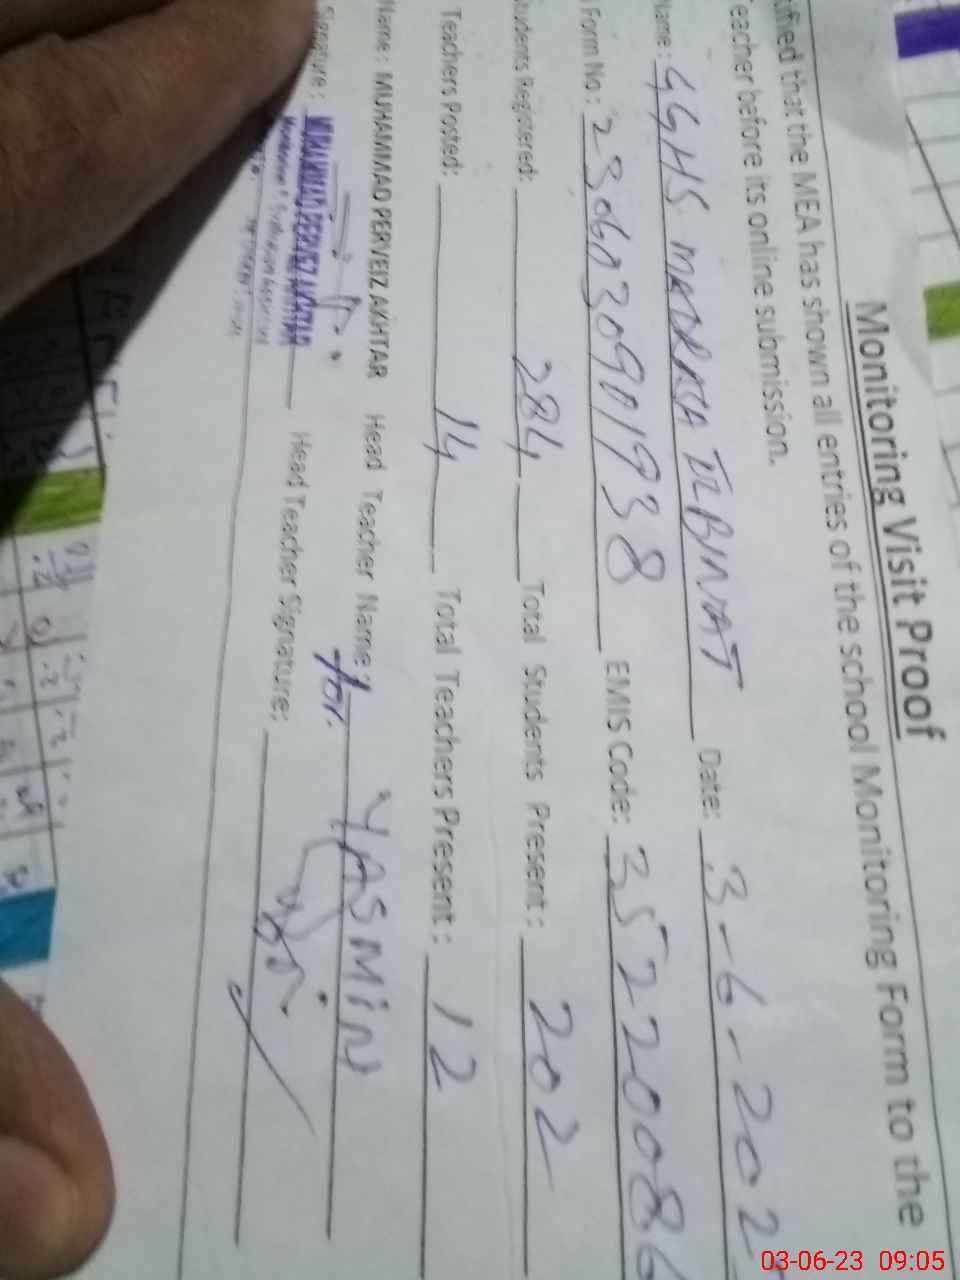 Monitoring Visit Proof
tified that the MEA has shown all entries of the school Monitoring Form to the
eacher before its online submission.
Name: GGHS MADRISA TUL BINAT Date: 3-6-202
Form No: 2306030901938 EMIS Code: 35220086
tudents Registered: 284 Total Students Present: 202
Teachers Posted: 14 Total Teachers Present: 12
Name: MUHAMMAD PERVEIZ AKHTAR Head Teacher Name: YASMIN
for.
Signature: Head Teacher Signature:
MUHAMMAD PERVEZ AKHTAR
Monitoring & Evaluation Assistant
03-06-23 09:05